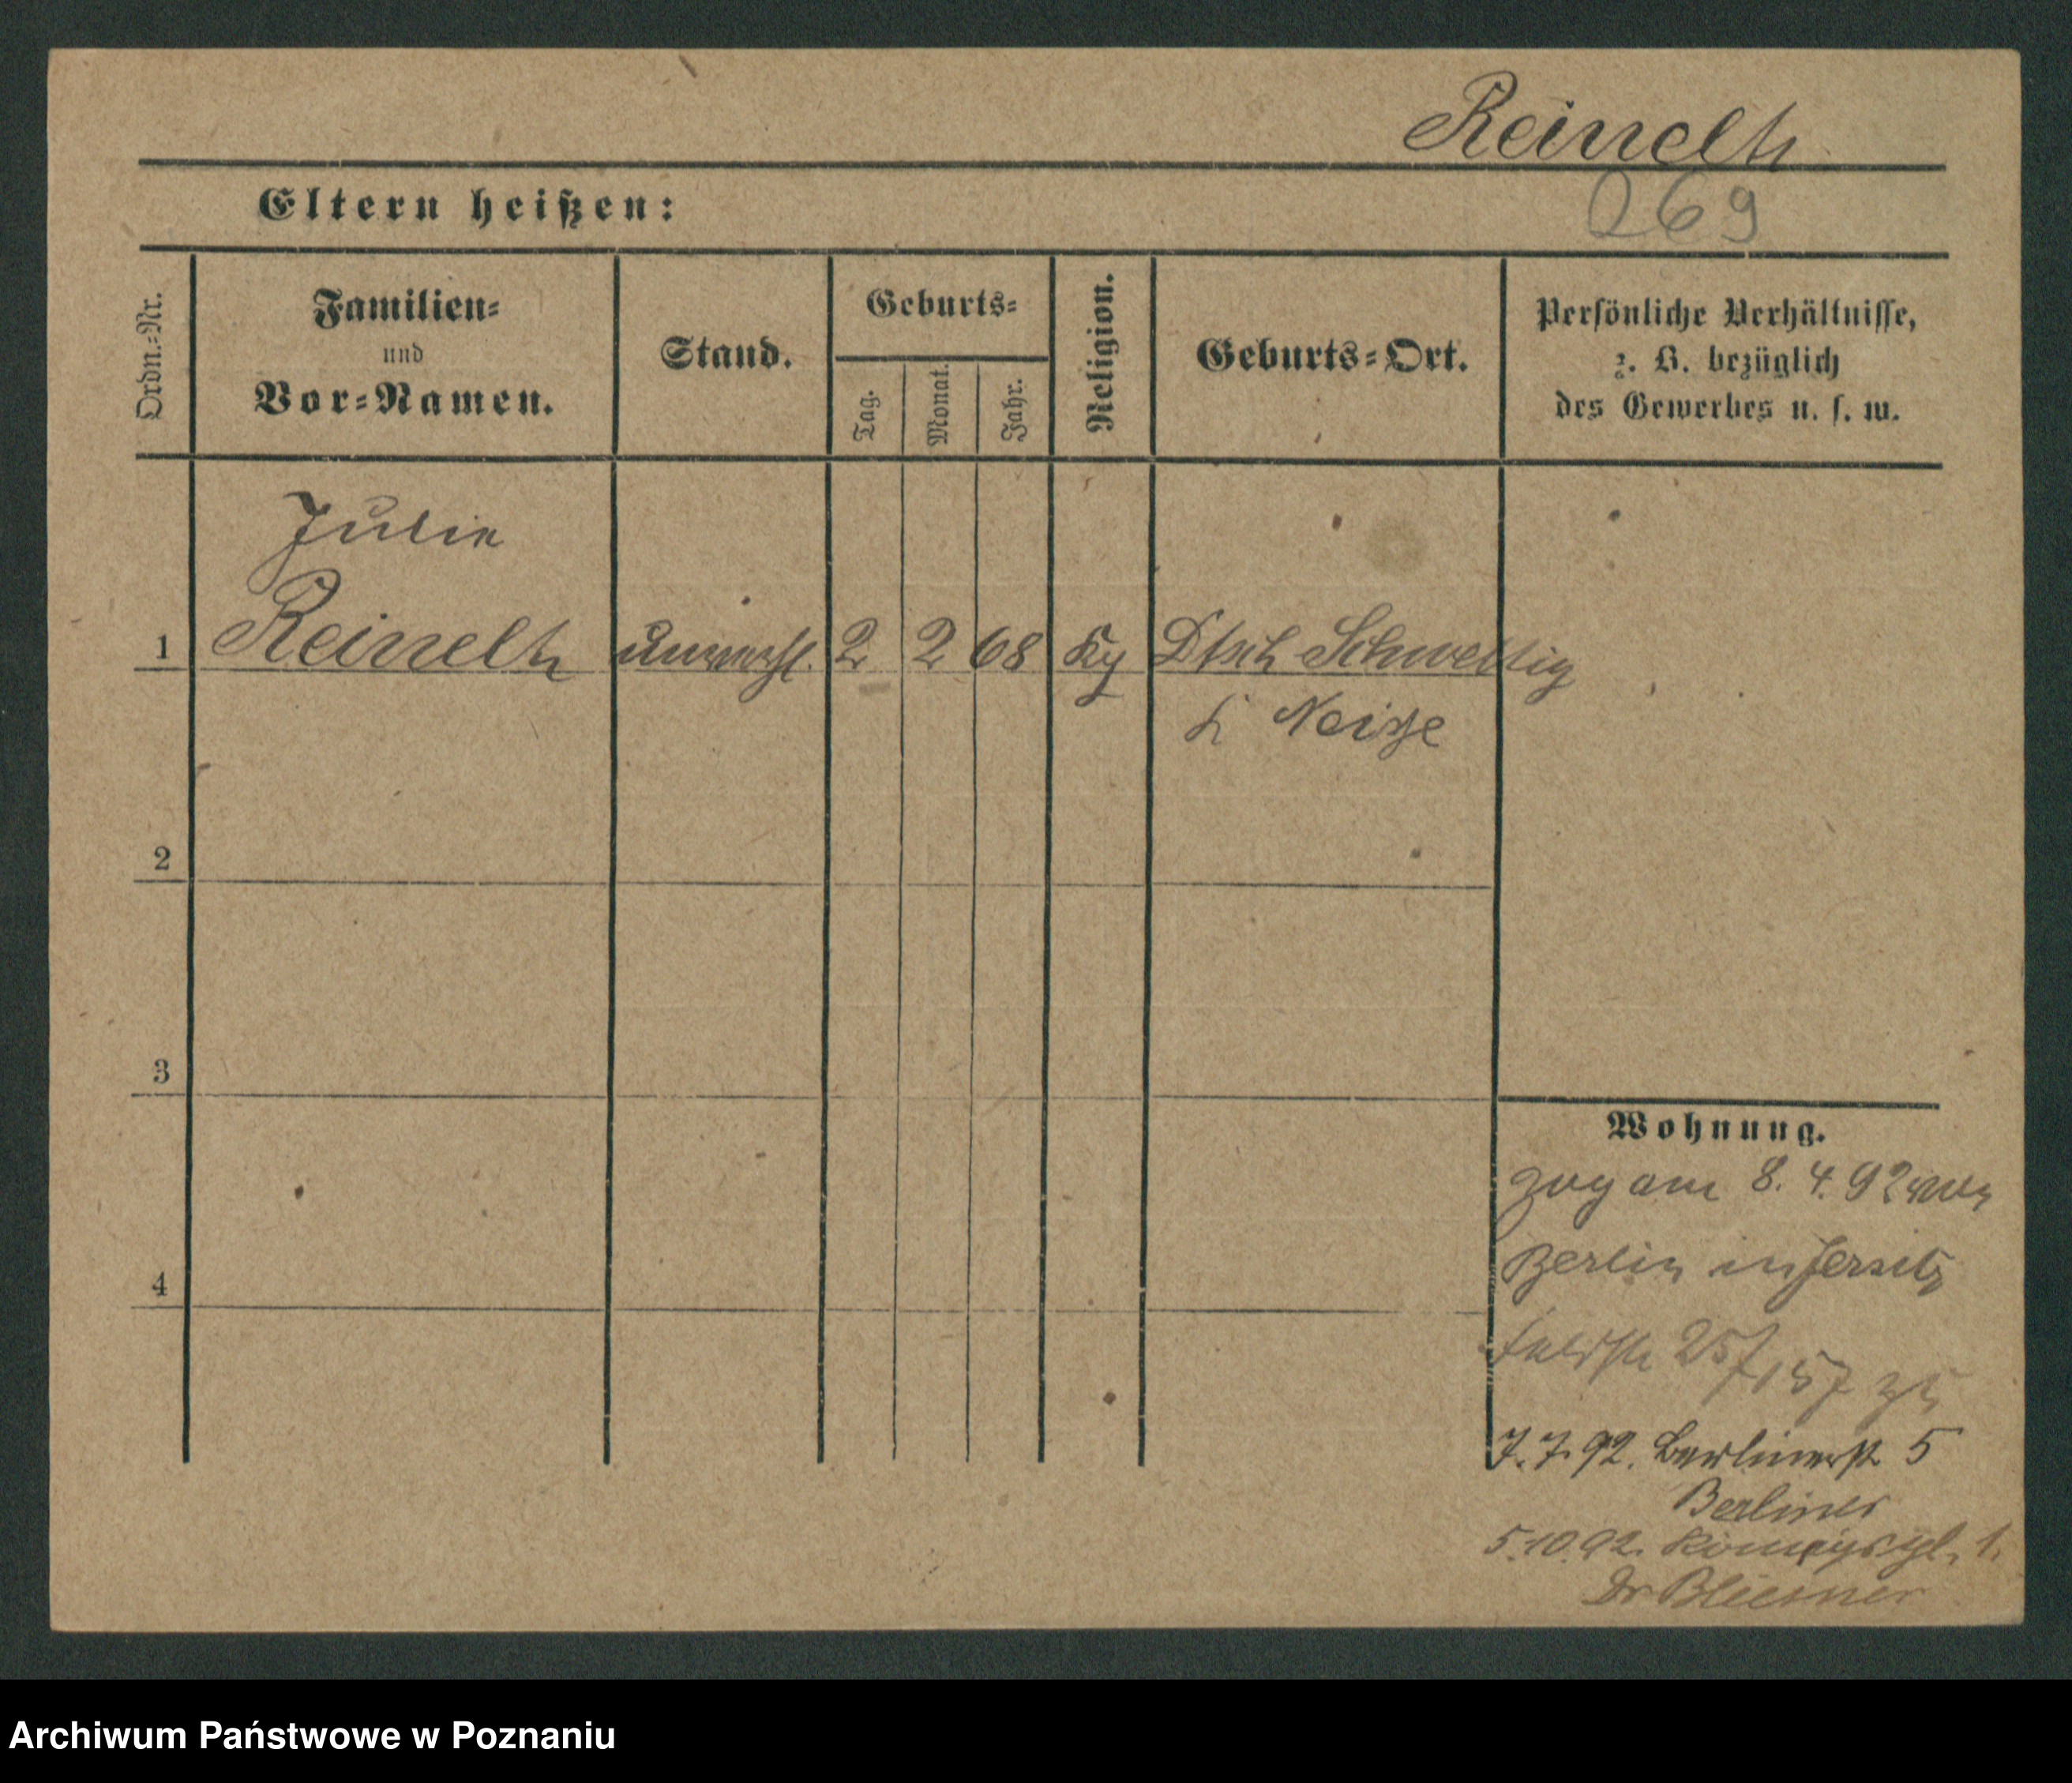 Reinelt
269
Eltern heißen:
Ordn.-Nr.
Familien-
und
Vor-Namen.
Stand.
Geburts-
Tag.
Monat.
Jahr.
Religion.
Geburts-Ort.
Persönliche Verhältnisse,
z. B. bezüglich
des Gewerbes u. s. w.
Julie
1 Reinelt unverehl. 2 2 68 Dtsch
Neiße
2
3
4
Wohnung.
zog am 8. 4. 92 von
Berlin in Jersitz
25
7.7.92. Berlinerstr 5
Berliner
5.10.92. Königspl. 1.
Dr
Archiwum Państwowe w Poznaniu